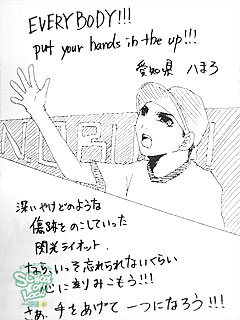 EVERYBODY!!!
put your hands in the up!!!
愛知県 ハまろ
NOBU
深いやけどのような
傷跡をのこしていった
閃光ライオット.
なら、いっそ忘れられないぐらい
心に刻みこもう!!!
さあ、手をあげて一つになろう!!!